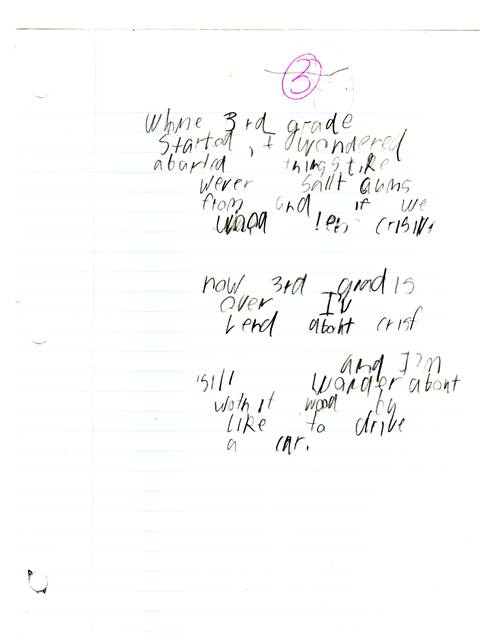 3
Whne 3rd grade
Started, I wondered
abarted things like
wever sallt cums
from and if we
wood len crisive
now 3rd grad is
over I'v
Lend about crisf
and I'm
still wander about
woth it wood by
like to drive
a car.